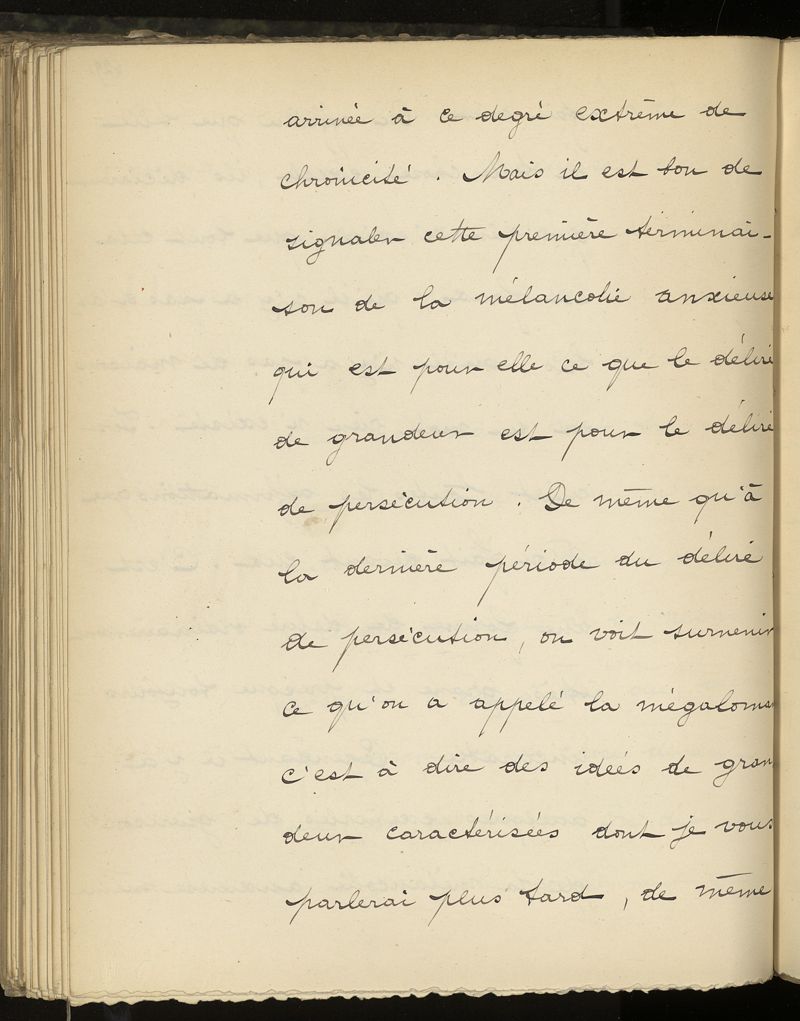 arrivée à ce degré extrême de
chronicité. Mais il est bon de
signaler cette première terminai-
son de la mélancolie anxieuse
qui est pour elle ce que le délire
de grandeur est pour le délire
de persécution. De même qu'à
la dernière période du délire
de persécution, on voit survenir
ce qu'on a appelé la mégaloma
c'est à dire des idées de gran
deur caractérisées dont je vous
parlerai plus tard, de même